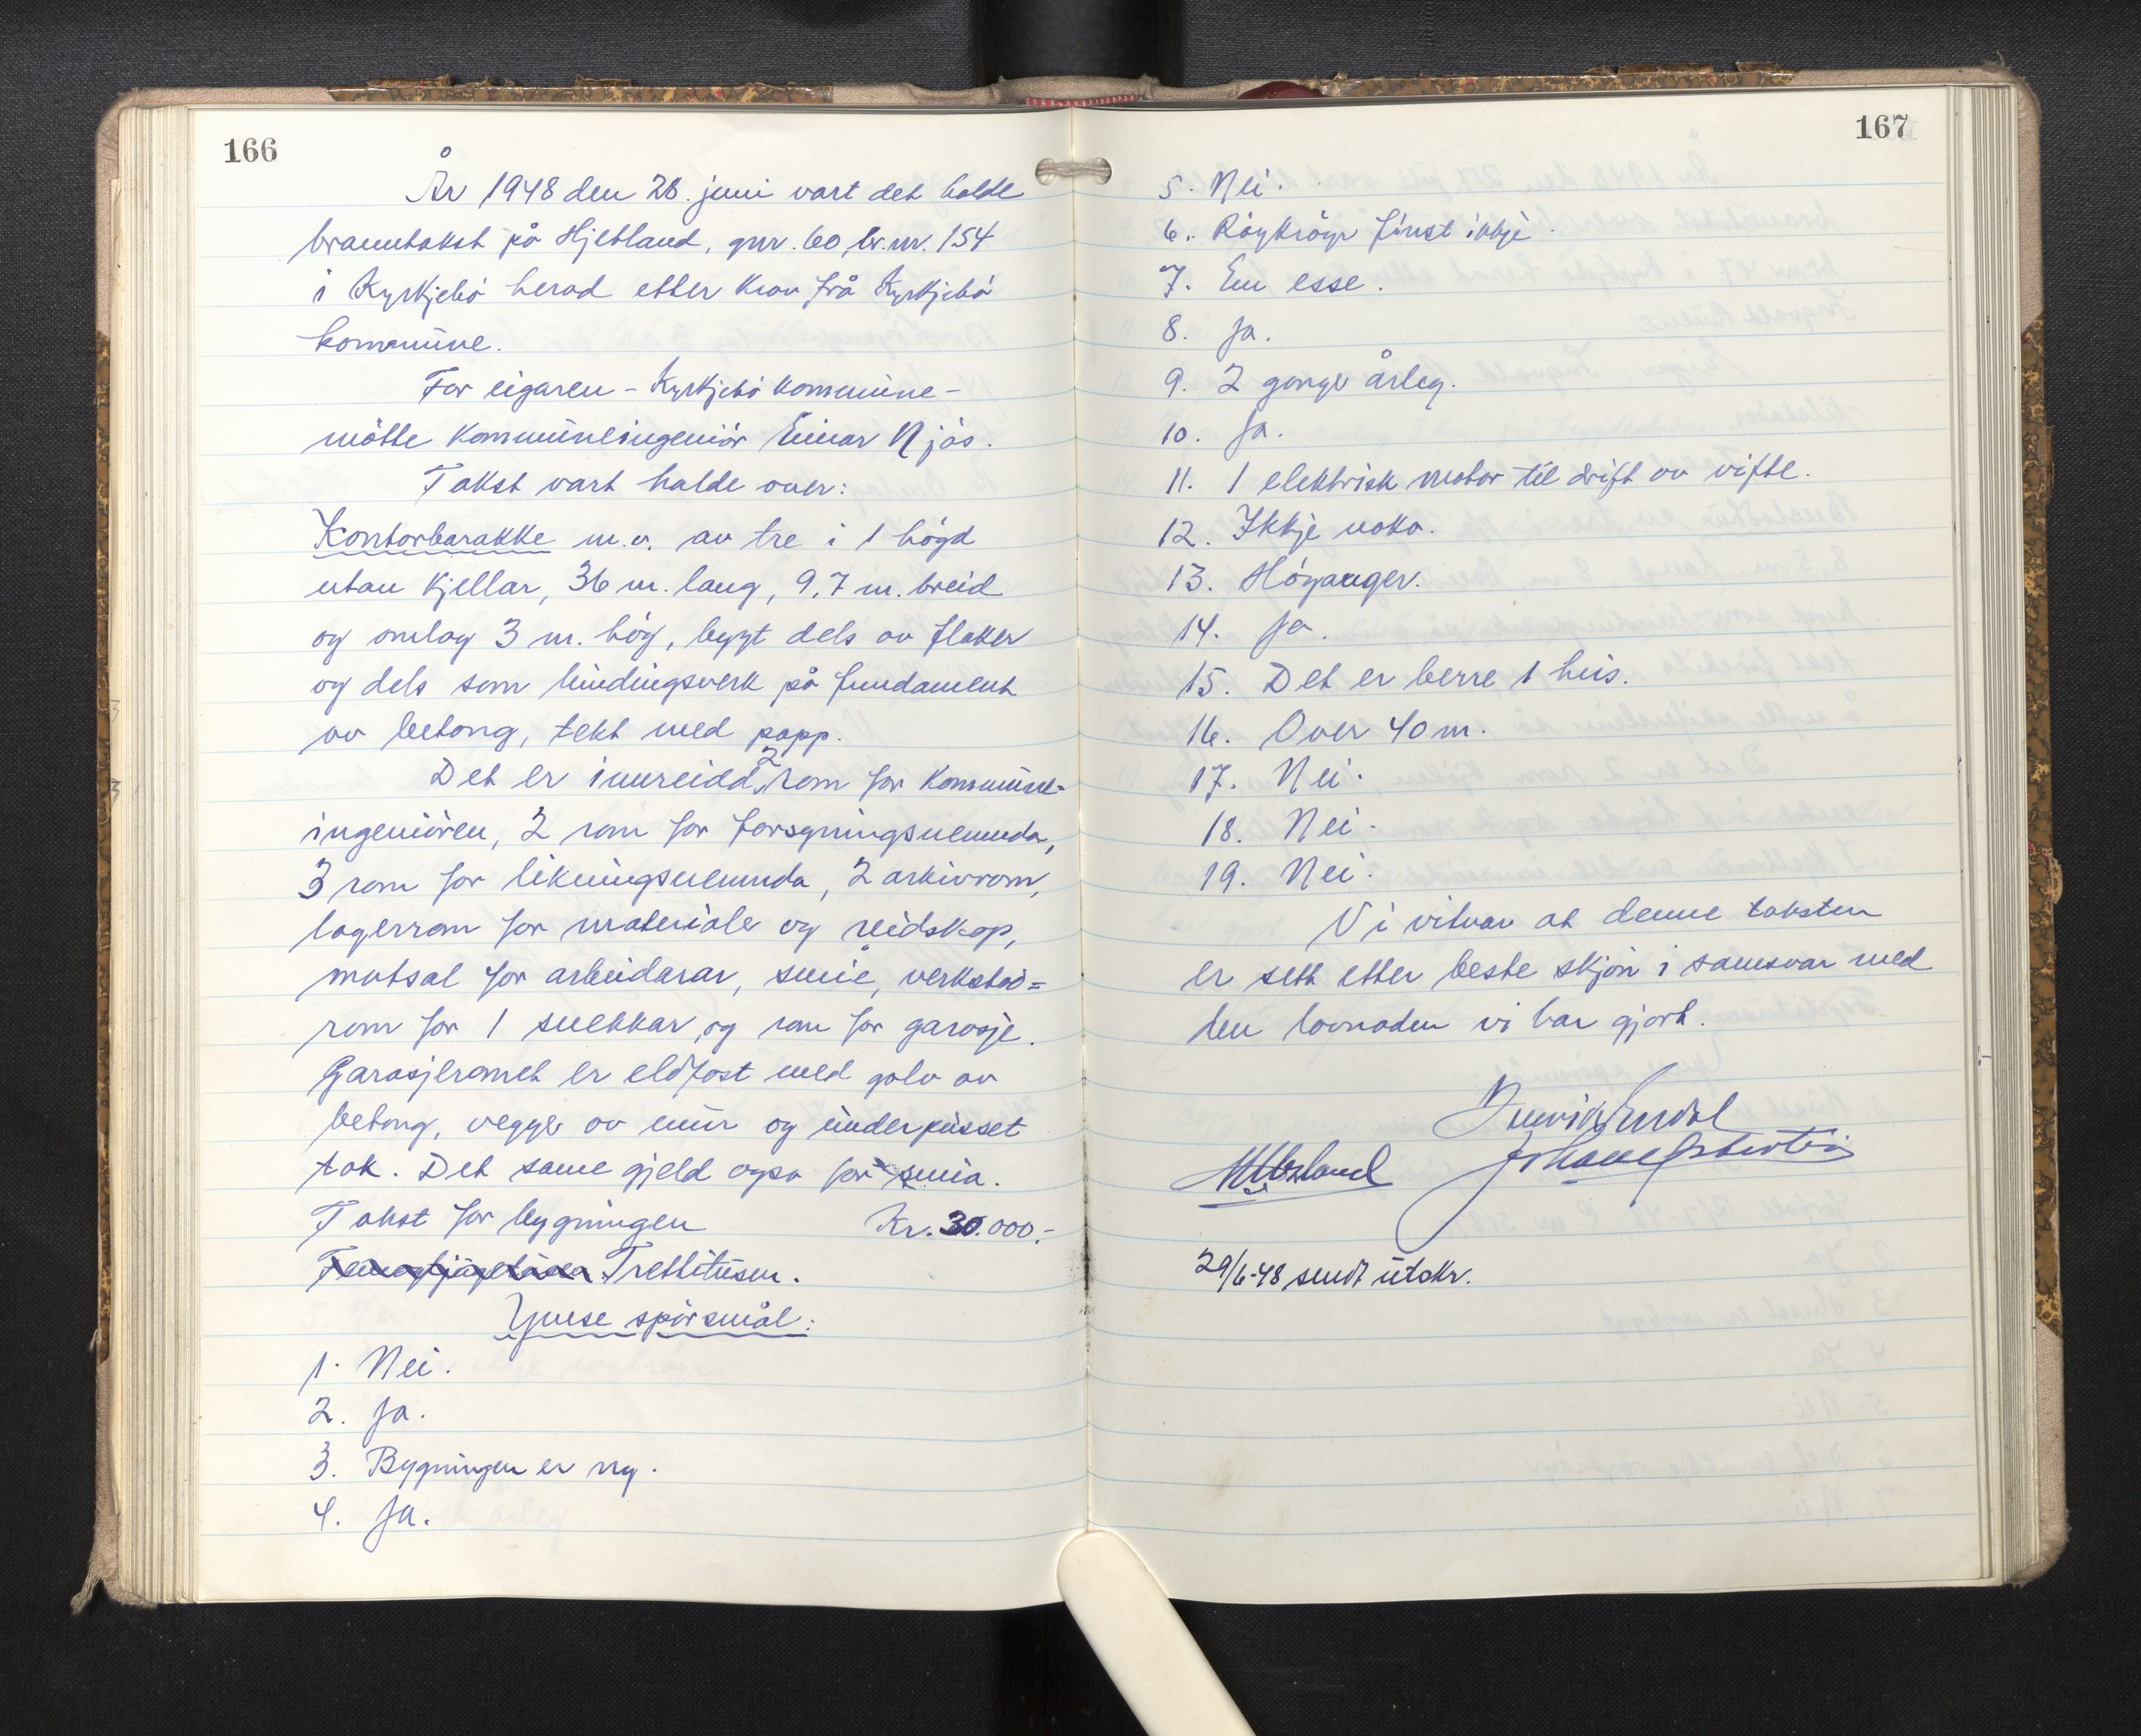 166
År 1948 den 28. juni vart det halde
branntakst på Hjetland, gnr. 60, br.nr. 154
i Kyrkjebö herad etter krav frå Kyrkjebö
kommune.
For eigaren - Kyrkjebö kommune -
mötte kommuneingeniör Einar Njös.
Takst vart halde over:
Kontorbarakke m.v. av tre i 1 högd
utan kjellar, 36 m. lang, 9,7 m. breid
og omlag 3 m. hög, bygt dels av flaker
og dels som bindingsverk på fundament
av betong, tekt med papp.
Det er innreidd 2 rom for kommune-
ingeniören, 2 rom for forsyningsnemnda,
3 rom for likningsnemnda, 2 arkivrom,
lagerrom for materiale og reidskap,
matsal for arbeidarar, smie, verkstad=
rom for 1 snekkar og rom for garasje.
Garasjeromet er eldfast med golv av
betong, vegger av mur og underpusset
tak. Det same gjeld også for smia.
Takst for bygningen Kr. 30.000.-
Trettitusen.
Ymse spörsmål:
1. Nei.
2. Ja.
3. Bygningen er ny.
4. Ja.
167
5. Nei.
6. Röykrör finst ikkje.
7. Ein esse.
8. Ja.
9. 2 gonger årleg.
10. Ja.
11. 1 elektrisk motor til drift av vifte.
12. Ikkje noko.
13. Höyanger.
14. Ja.
15. Det er berre 1 hus.
16. Over 40 m.
17. Nei.
18. Nei.
19. Nei.
Vi vitnar at denne taksten
er sett etter beste skjön i samsvar med
den lovnaden vi har gjort.
29/6-48 sendt utskr.